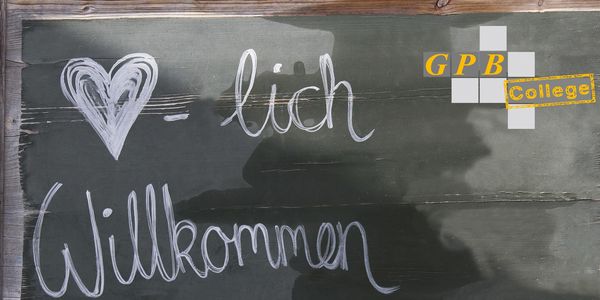 - lich
GPB
College
Willkommen